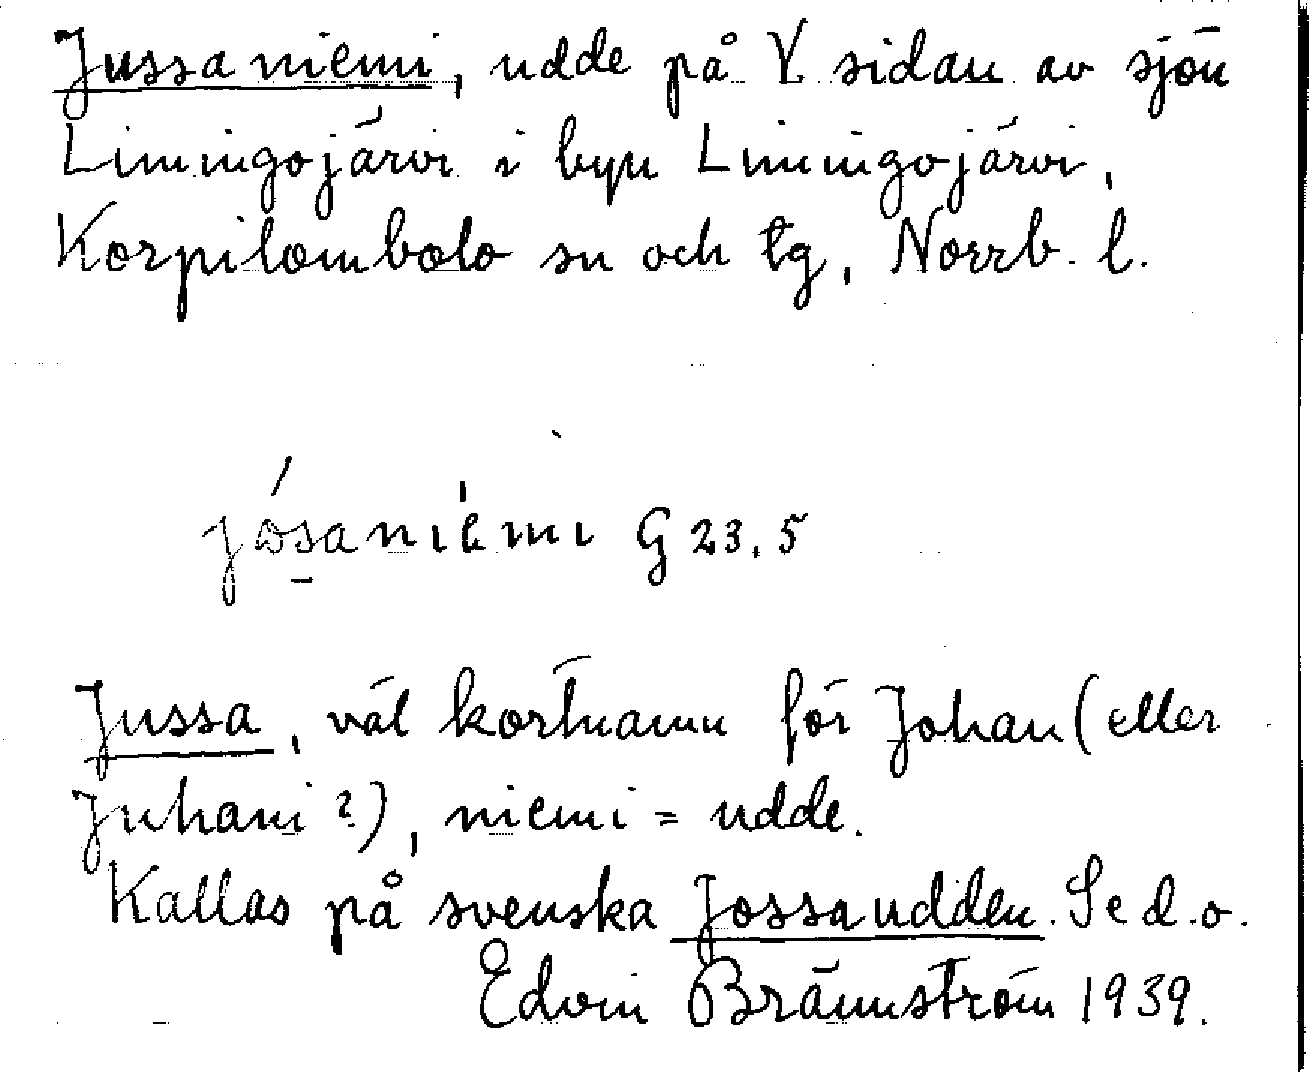 Jussaniemi, udde på V sidan av sjön
Liminigojärvi i byn Liminigojärvi,
Korpilombolo sn och tg, Norrb. l.
jósaniemi G 23.5
Jussa, väl kortnamn för Johan (eller
Juhani?), niemi = udde.
Kallas på svenska Jossaudden. Se d. o.
Edvin Brännström 1939.